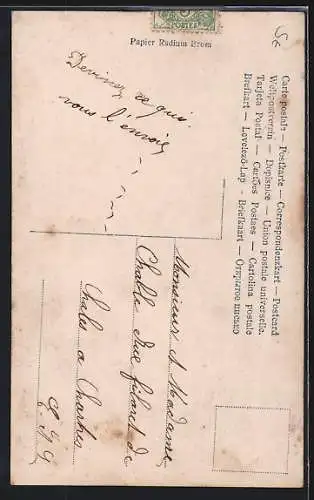 Papier Radium Brom
Carte postale — Postkarte — Correspondenzkart — Postcard
Weltpostverein — Dopisnice — Union postale universelle.
Tarjeta Postal — Cartões Postaes — Cartolina postale
Brefkart — Levelezö-Lap — Briefkaart — Открытое письмо
Devinez ce que
vous l'envoie
Monsieur et Madame
Challe Rue de
Chales a Chartres